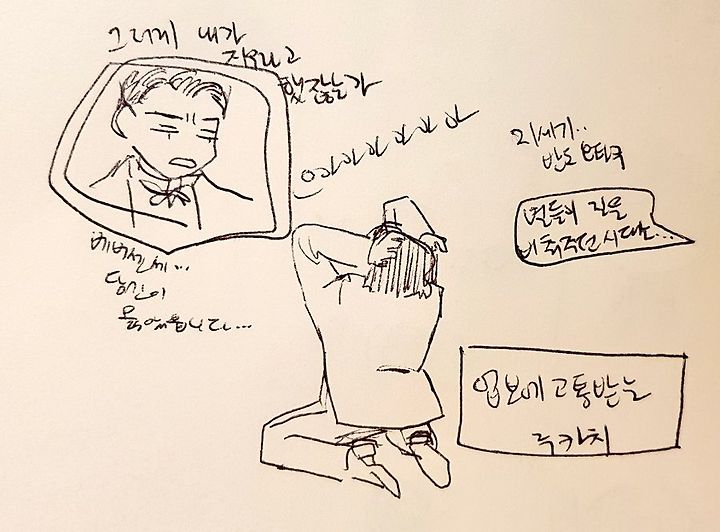 그러게 내가
자라고
했잖는가
으아아아아아아
21세기..
반도 오타쿠
별들이 길을
비춰주던 시대는...
베버씨...
당신이
옳았습니다...
업보에 고통받는
루카치